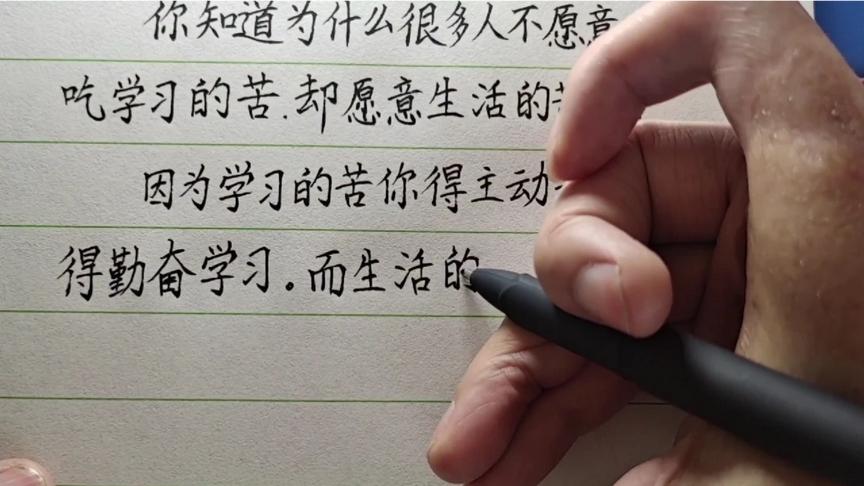 你知道为什么很多人不愿意
吃学习的苦.却愿意生活的
因为学习的苦你得主动
得勤奋学习。而生活的